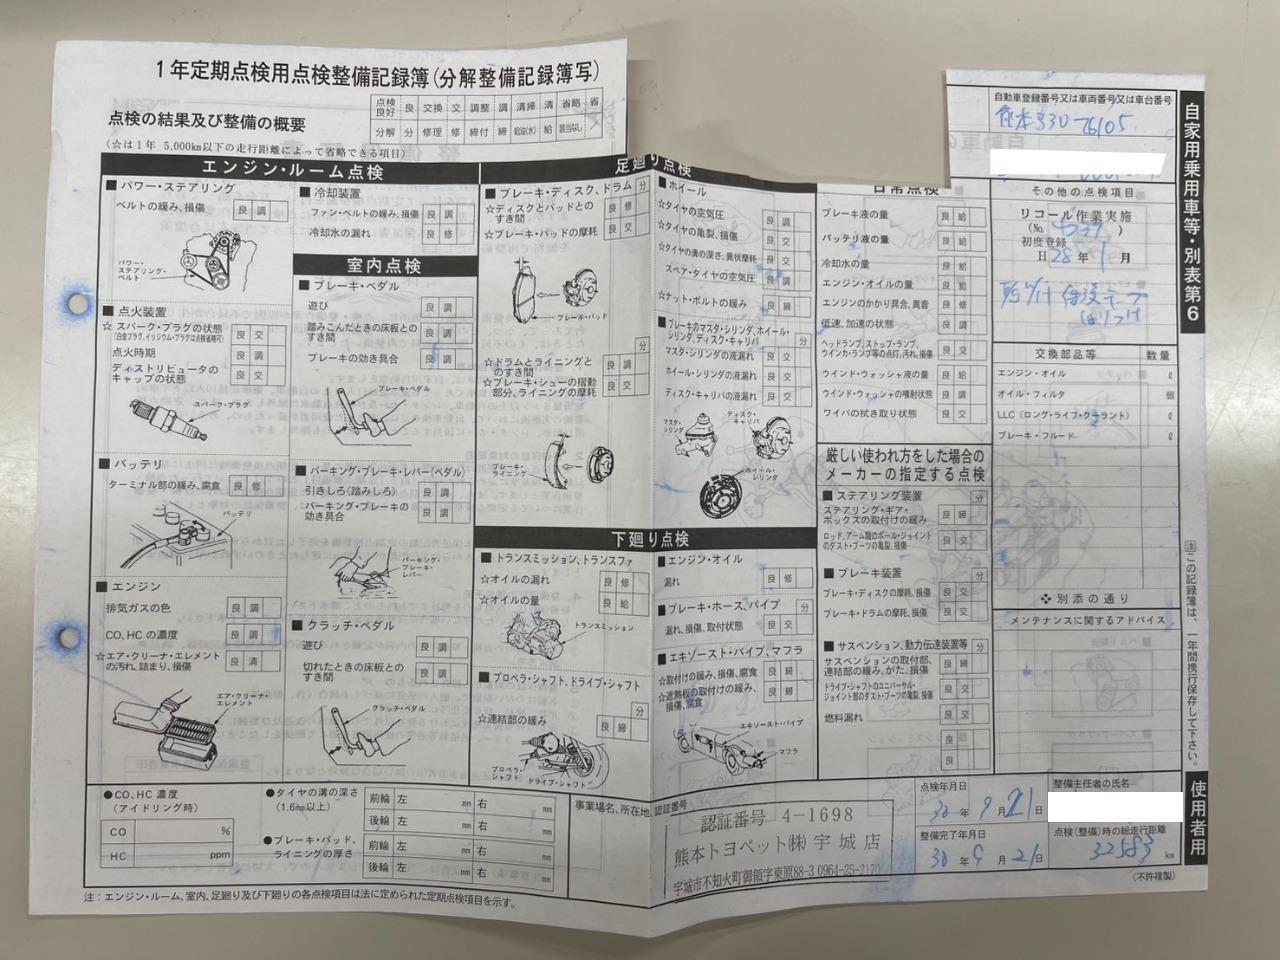 1年定期点検用点検整備記録簿(分解整備記録簿写)
点検の結果及び整備の概要
点検良好 良 交換 交 調整 調 清掃 清 省略 省
分解 分 修理 修 締付 締 給油(水) 給 該当なし ／
(☆は1年 5,000km以下の走行距離によって省略できる項目)
エンジン・ルーム点検
■パワー・ステアリング
ベルトの緩み、損傷 良 調
パワー・ステアリング・ベルト
■点火装置
☆スパーク・プラグの状態 良 交
(白金プラグ、イリジウム・プラグは点検省略可)
点火時期 良 調
ディストリビュータのキャップの状態 良 交
スパーク・プラグ
■バッテリ
ターミナル部の緩み、腐食 良 修
バッテリ
■エンジン
排気ガスの色 良 調
CO、HCの濃度 良 調
☆エア・クリーナ・エレメントの汚れ、詰まり、損傷 良 清
エア・クリーナ・エレメント
■冷却装置
ファン・ベルトの緩み、損傷 良 調
冷却水の漏れ 良 修
室内点検
■ブレーキ・ペダル
遊び 良 調
踏みこんだときの床板とのすき間 良 調
ブレーキの効き具合 良 調
ブレーキ・ペダル
■パーキング・ブレーキ・レバー(ペダル)
引きしろ(踏みしろ) 良 調
パーキング・ブレーキの効き具合 良 調
パーキング・ブレーキ・レバー
■クラッチ・ペダル
遊び 良 調
切れたときの床板とのすき間 良 調
クラッチ・ペダル
足廻り点検
■ブレーキ・ディスク、ドラム 分
☆ディスクとパッドとのすき間 良 修
☆ブレーキ・パッドの摩耗 良 交
ブレーキ・パッド
分
☆ドラムとライニングとのすき間 良 調
☆ブレーキ・シューの摺動部分、ライニングの摩耗 良 交
ブレーキ・ライニング
■ホイール
☆タイヤの空気圧 良 調
☆タイヤの亀裂、損傷 良 交
☆タイヤの溝の深さ、異状摩耗 良 交
スペア・タイヤの空気圧 良 調
☆ナット・ボルトの緩み 良 締
■ブレーキのマスタ・シリンダ、ホイール・シリンダ、ディスク・キャリパ 分
マスタ・シリンダの液漏れ 良 交
ホイール・シリンダの液漏れ 良 交
ディスク・キャリパの液漏れ 良 交
マスタ・シリンダ
ディスク・キャリパ
ホイール・シリンダ
下廻り点検
■トランスミッション、トランスファ
☆オイルの漏れ 良 修
☆オイルの量 良 給
トランスミッション
■プロペラ・シャフト、ドライブ・シャフト 分
☆連結部の緩み 良 締
プロペラ・シャフト
ドライブ・シャフト
■エンジン・オイル
漏れ 良 修
■ブレーキ・ホース、パイプ 分
漏れ、損傷、取付状態 良 交
■エキゾースト・パイプ、マフラ
☆取付の緩み、損傷、腐食 良 締
☆遮熱板の取付けの緩み、損傷、腐食 良 締
エキゾースト・パイプ
マフラ
日常点検
ブレーキ液の量 良 給
バッテリ液の量 良 給
冷却水の量 良 給
エンジン・オイルの量 良 給
エンジンのかかり具合、異音 良 修
低速、加速の状態 良 調
ヘッドランプ、ストップ・ランプ、ウインカ・ランプ等の点灯、汚れ、損傷 良 修
ウインド・ウォッシャ液の量 良 給
ウインド・ウォッシャの噴射状態 良 調
ワイパの拭き取り状態 良 交
厳しい使われ方をした場合のメーカーの指定する点検
■ステアリング装置 分
ステアリング・ギア・ボックスの取付けの緩み 良 締
ロッド、アーム類のボール・ジョイントのダスト・ブーツの亀裂、損傷 良 交
■ブレーキ装置 分
ブレーキ・ディスクの摩耗、損傷 良 交
ブレーキ・ドラムの摩耗、損傷 良 交
■サスペンション、動力伝達装置等 分
サスペンションの取付部、連結部の緩み、がた、損傷 良 締
ドライブ・シャフトのユニバーサル・ジョイント部のダスト・ブーツの亀裂、損傷 良 交
燃料漏れ 良 交
良
良
自動車登録番号又は車両番号又は車台番号
熊本330 76105
その他の点検項目
リコール作業実施
(No. )
初度登録
H28年1月
交換部品等 数量
エンジン・オイル ℓ
オイル・フィルタ 個
LLC (ロング・ライフ・クーラント) ℓ
ブレーキ・フルード ℓ
❖別添の通り
メンテナンスに関するアドバイス
自家用乗用車等・別表第6
注 この記録簿は、一年間携行保存して下さい。
使用者用
●CO、HC濃度
(アイドリング時)
CO %
HC ppm
●タイヤの溝の深さ
(1.6mm以上)
前輪 左 mm 右 mm
後輪 左 mm 右 mm
●ブレーキ・パッド、ライニングの厚さ
前輪 左 mm 右 mm
後輪 左 mm 右 mm
事業場名、所在地、認証番号
認証番号 4-1698
熊本トヨペット(株)宇城店
宇城市不知火町御領字東原88-3 0964-25-2170
点検年月日
30年9月21日
整備完了年月日
30年9月21日
整備主任者の氏名
点検(整備)時の総走行距離
32583 km
(不許複製)
注：エンジン・ルーム、室内、足廻り及び下廻りの各点検項目は法に定められた定期点検項目を示す。